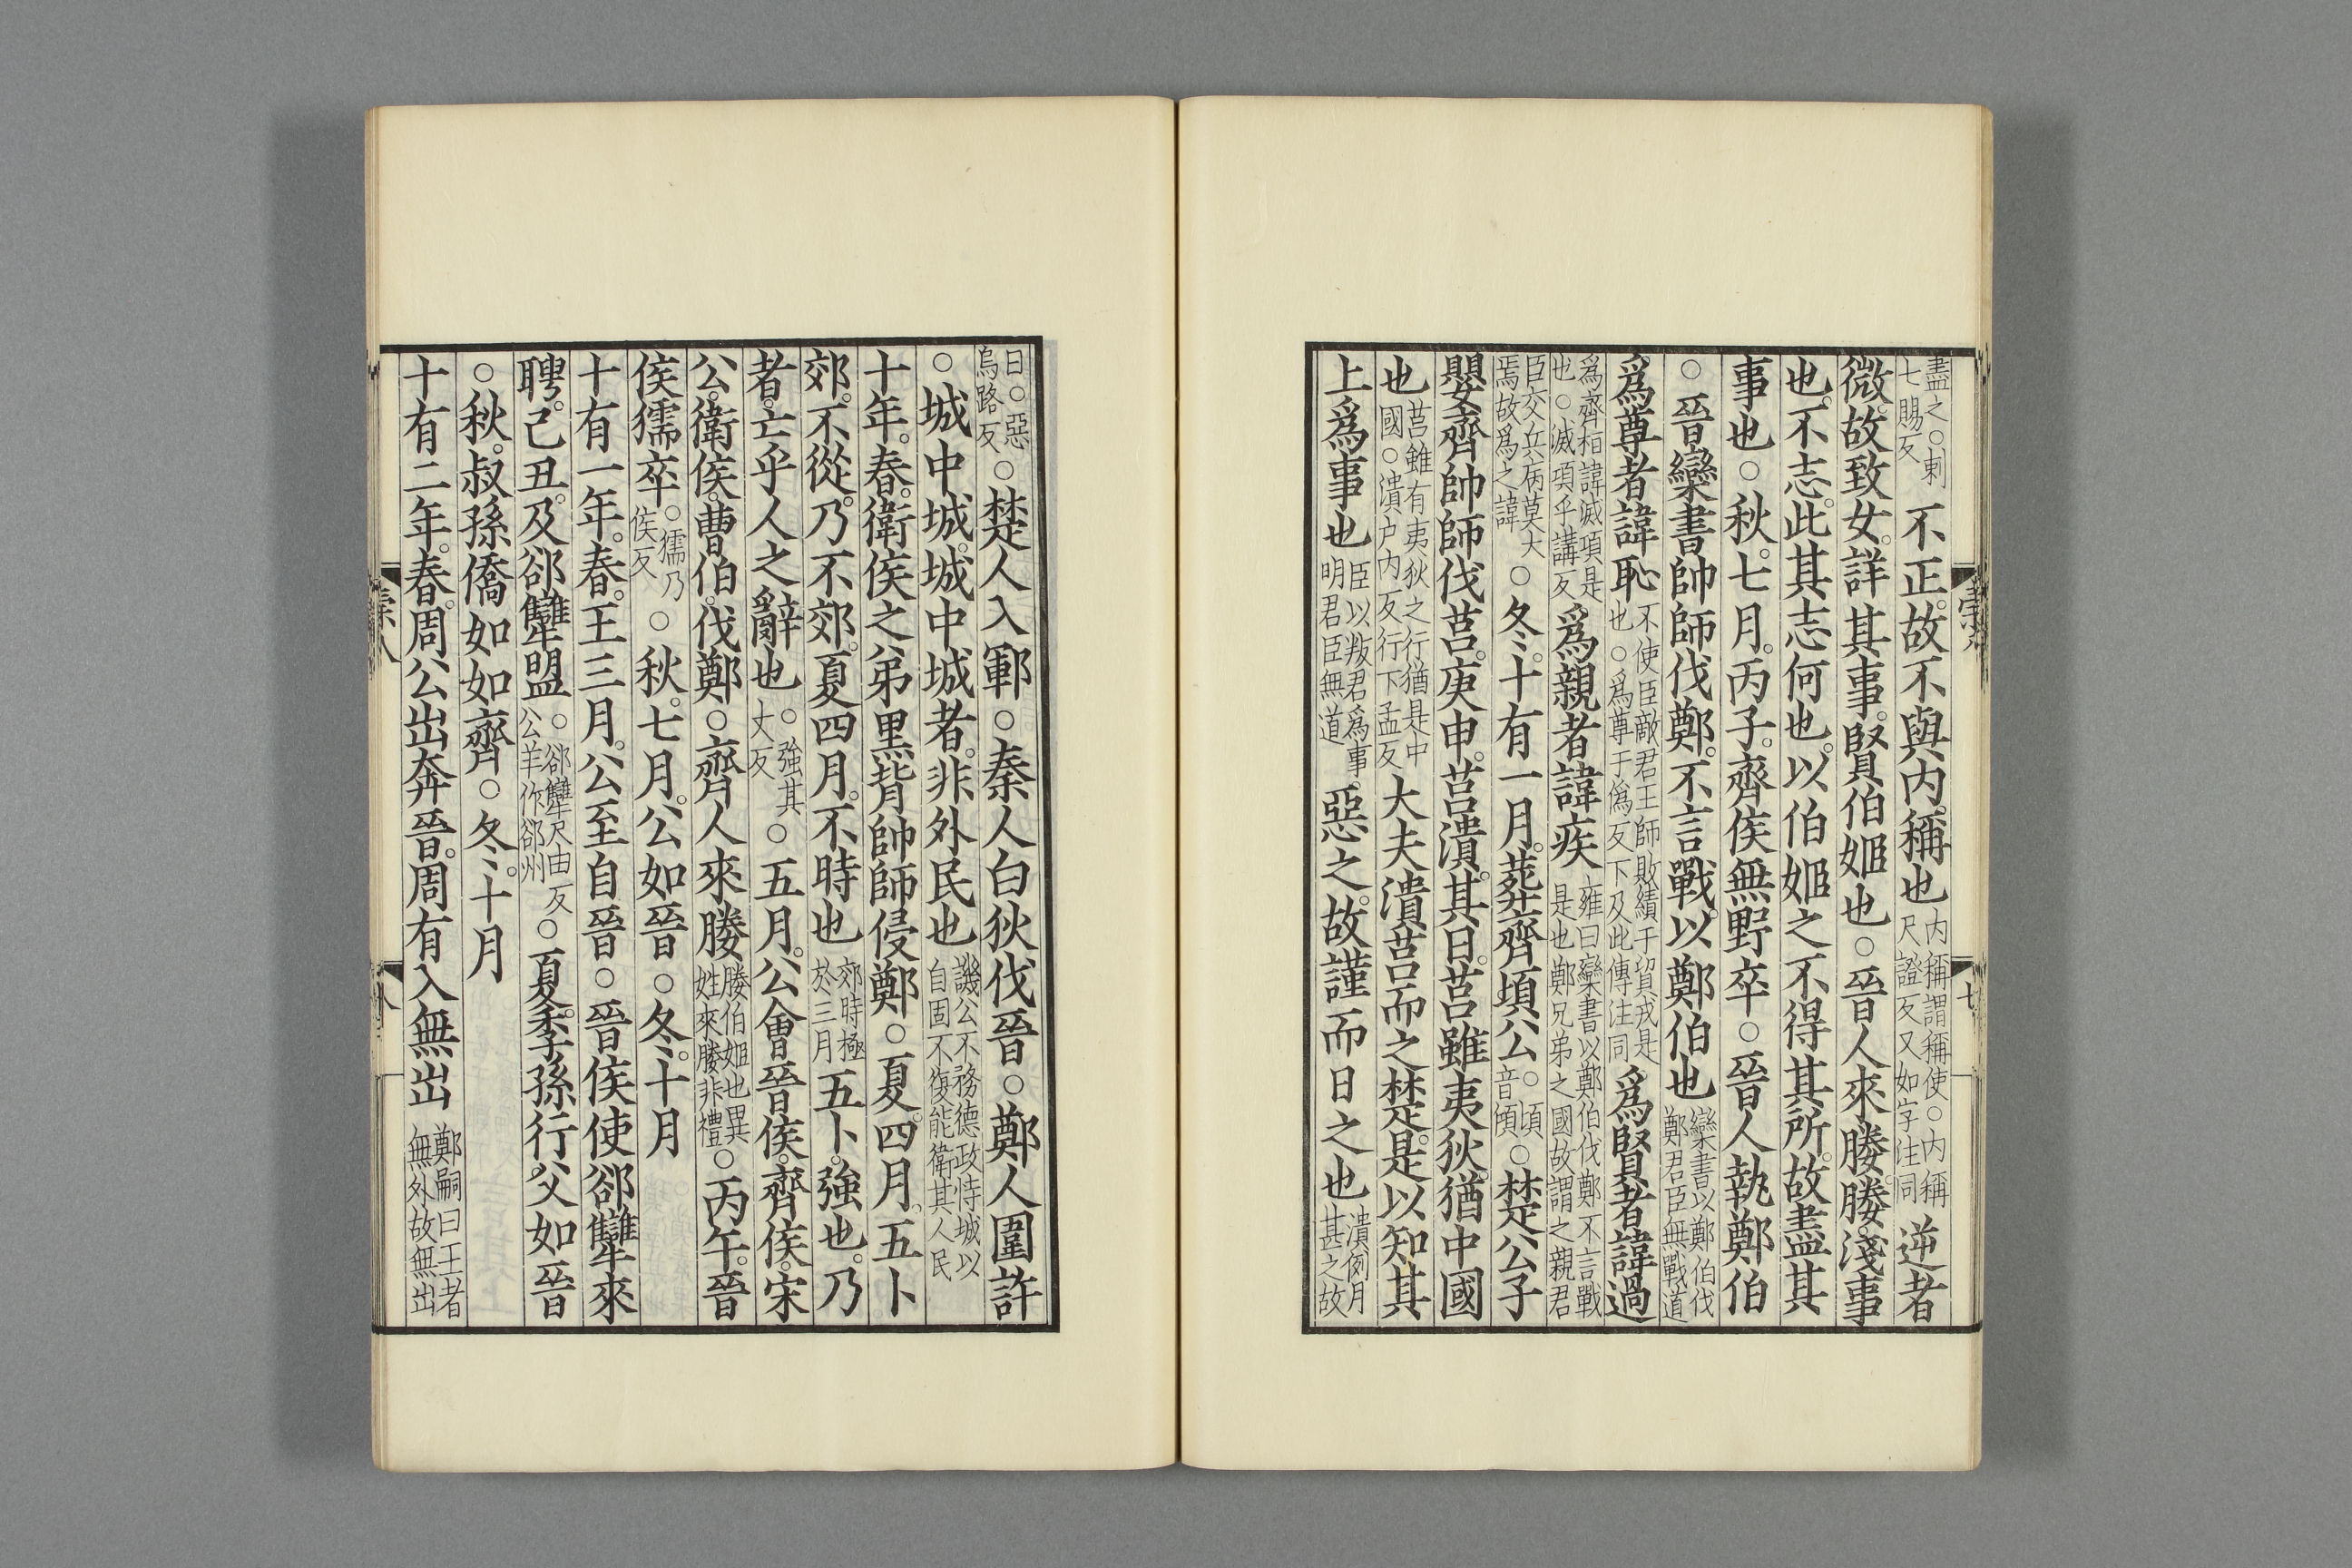 盡之○刺七賜反不正故不與內稱也內稱謂稱使○內稱尺證反又如字注同逆者
微故致女詳其事賢伯姬也○晉人來媵媵淺事
也不志此其志何也以伯姬之不得其所故盡其
事也○秋七月丙子齊侯無野卒○晉人執鄭伯
○晉欒書帥師伐鄭不言戰以鄭伯也欒書以鄭伯伐鄭君臣無戰道
爲尊者諱恥不使臣敵君王師敗績于貿戎是也○爲尊于僞反下及此傳注同爲賢者諱過
爲齊桓諱滅項是也○滅項乎講反爲親者諱疾雍曰欒書以鄭伯伐鄭不言戰是也鄭兄弟之國故謂之親君
臣交兵病莫大焉故爲之諱○冬十有一月葬齊頃公○頃音傾○楚公子
嬰齊帥師伐莒庚申莒潰其日莒雖夷狄猶中國
也莒雖有夷狄之行猶是中國○潰戶內反行下孟反大夫潰莒而之楚是以知其
上爲事也臣以叛君爲事明君臣無道惡之故謹而日之也潰例月甚之故
日○惡烏路反○楚人入鄆○秦人白狄伐晉○鄭人圍許
○城中城城中城者非外民也譏公不務德政恃城以自固不復能衛其人民
十年春衛侯之弟黑背帥師侵鄭○夏四月五卜
郊不從乃不郊夏四月不時也郊時極於三月五卜強也乃
者亡乎人之辭也○強其丈反○五月公會晉侯齊侯宋
公衛侯曹伯伐鄭○齊人來媵媵伯姬也異姓來媵非禮○丙午晉
侯獳卒○獳乃侯反○秋七月公如晉○冬十月
十有一年春王三月公至自晉○晉侯使郤犨來
聘己丑及郤犨盟○郤犨尺由反公羊作郤州○夏季孫行父如晉
○秋叔孫僑如如齊○冬十月
十有二年春周公出奔晉周有入無出鄭嗣曰王者無外故無出